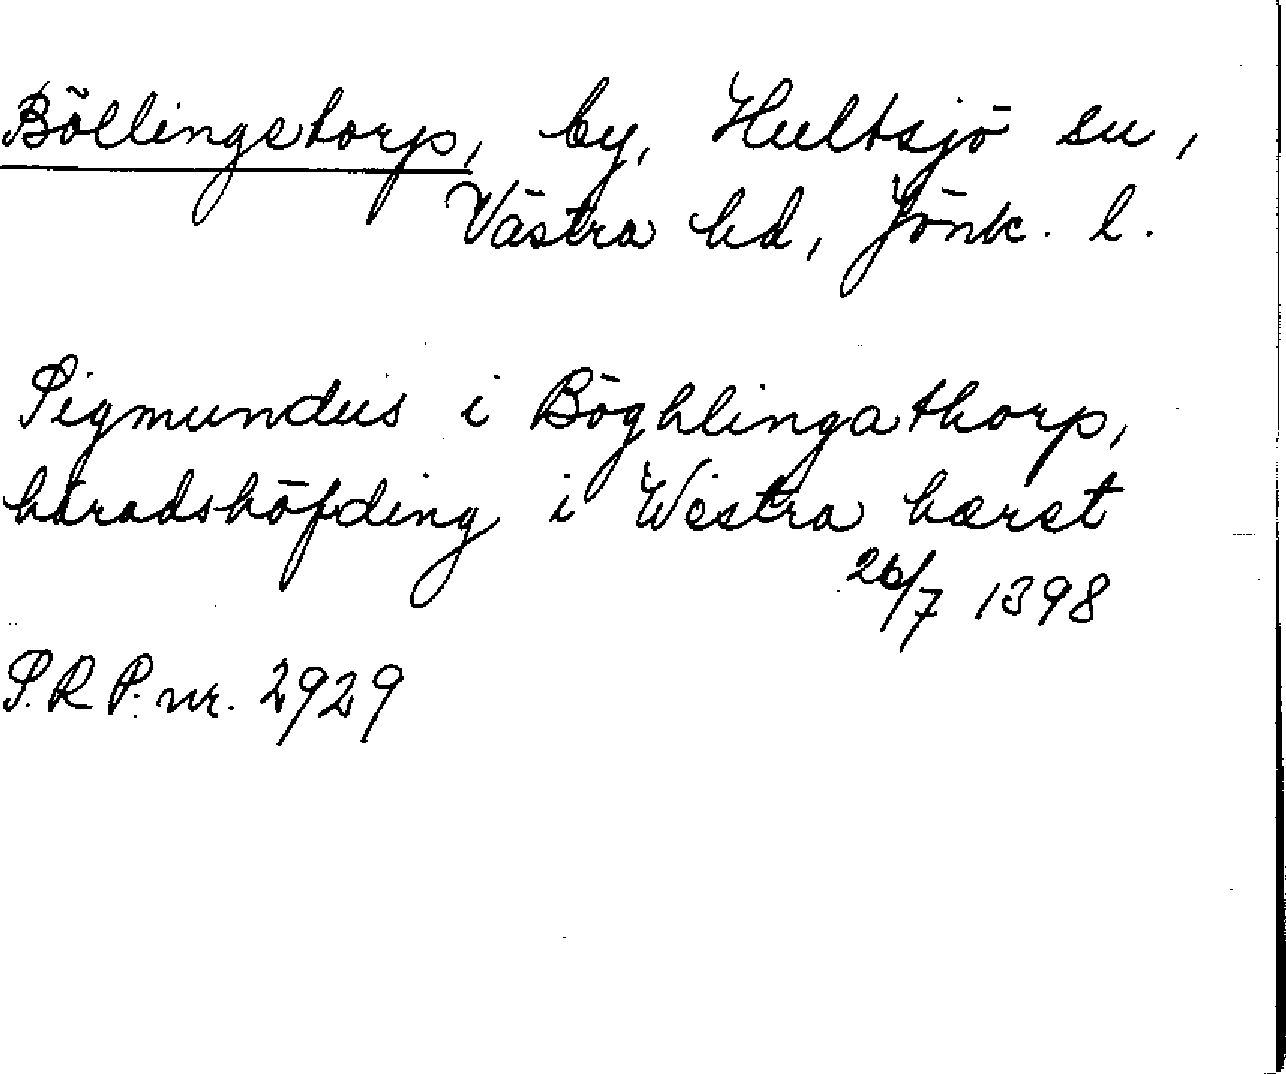 Böllingstorp, by, Hultsjö sn,
Västra hd, Jönk. l.
Sigmundus i Böghlingathorp,
häradshöfding i Westra hæret
26/7 1398
S.R.P. nr. 2929